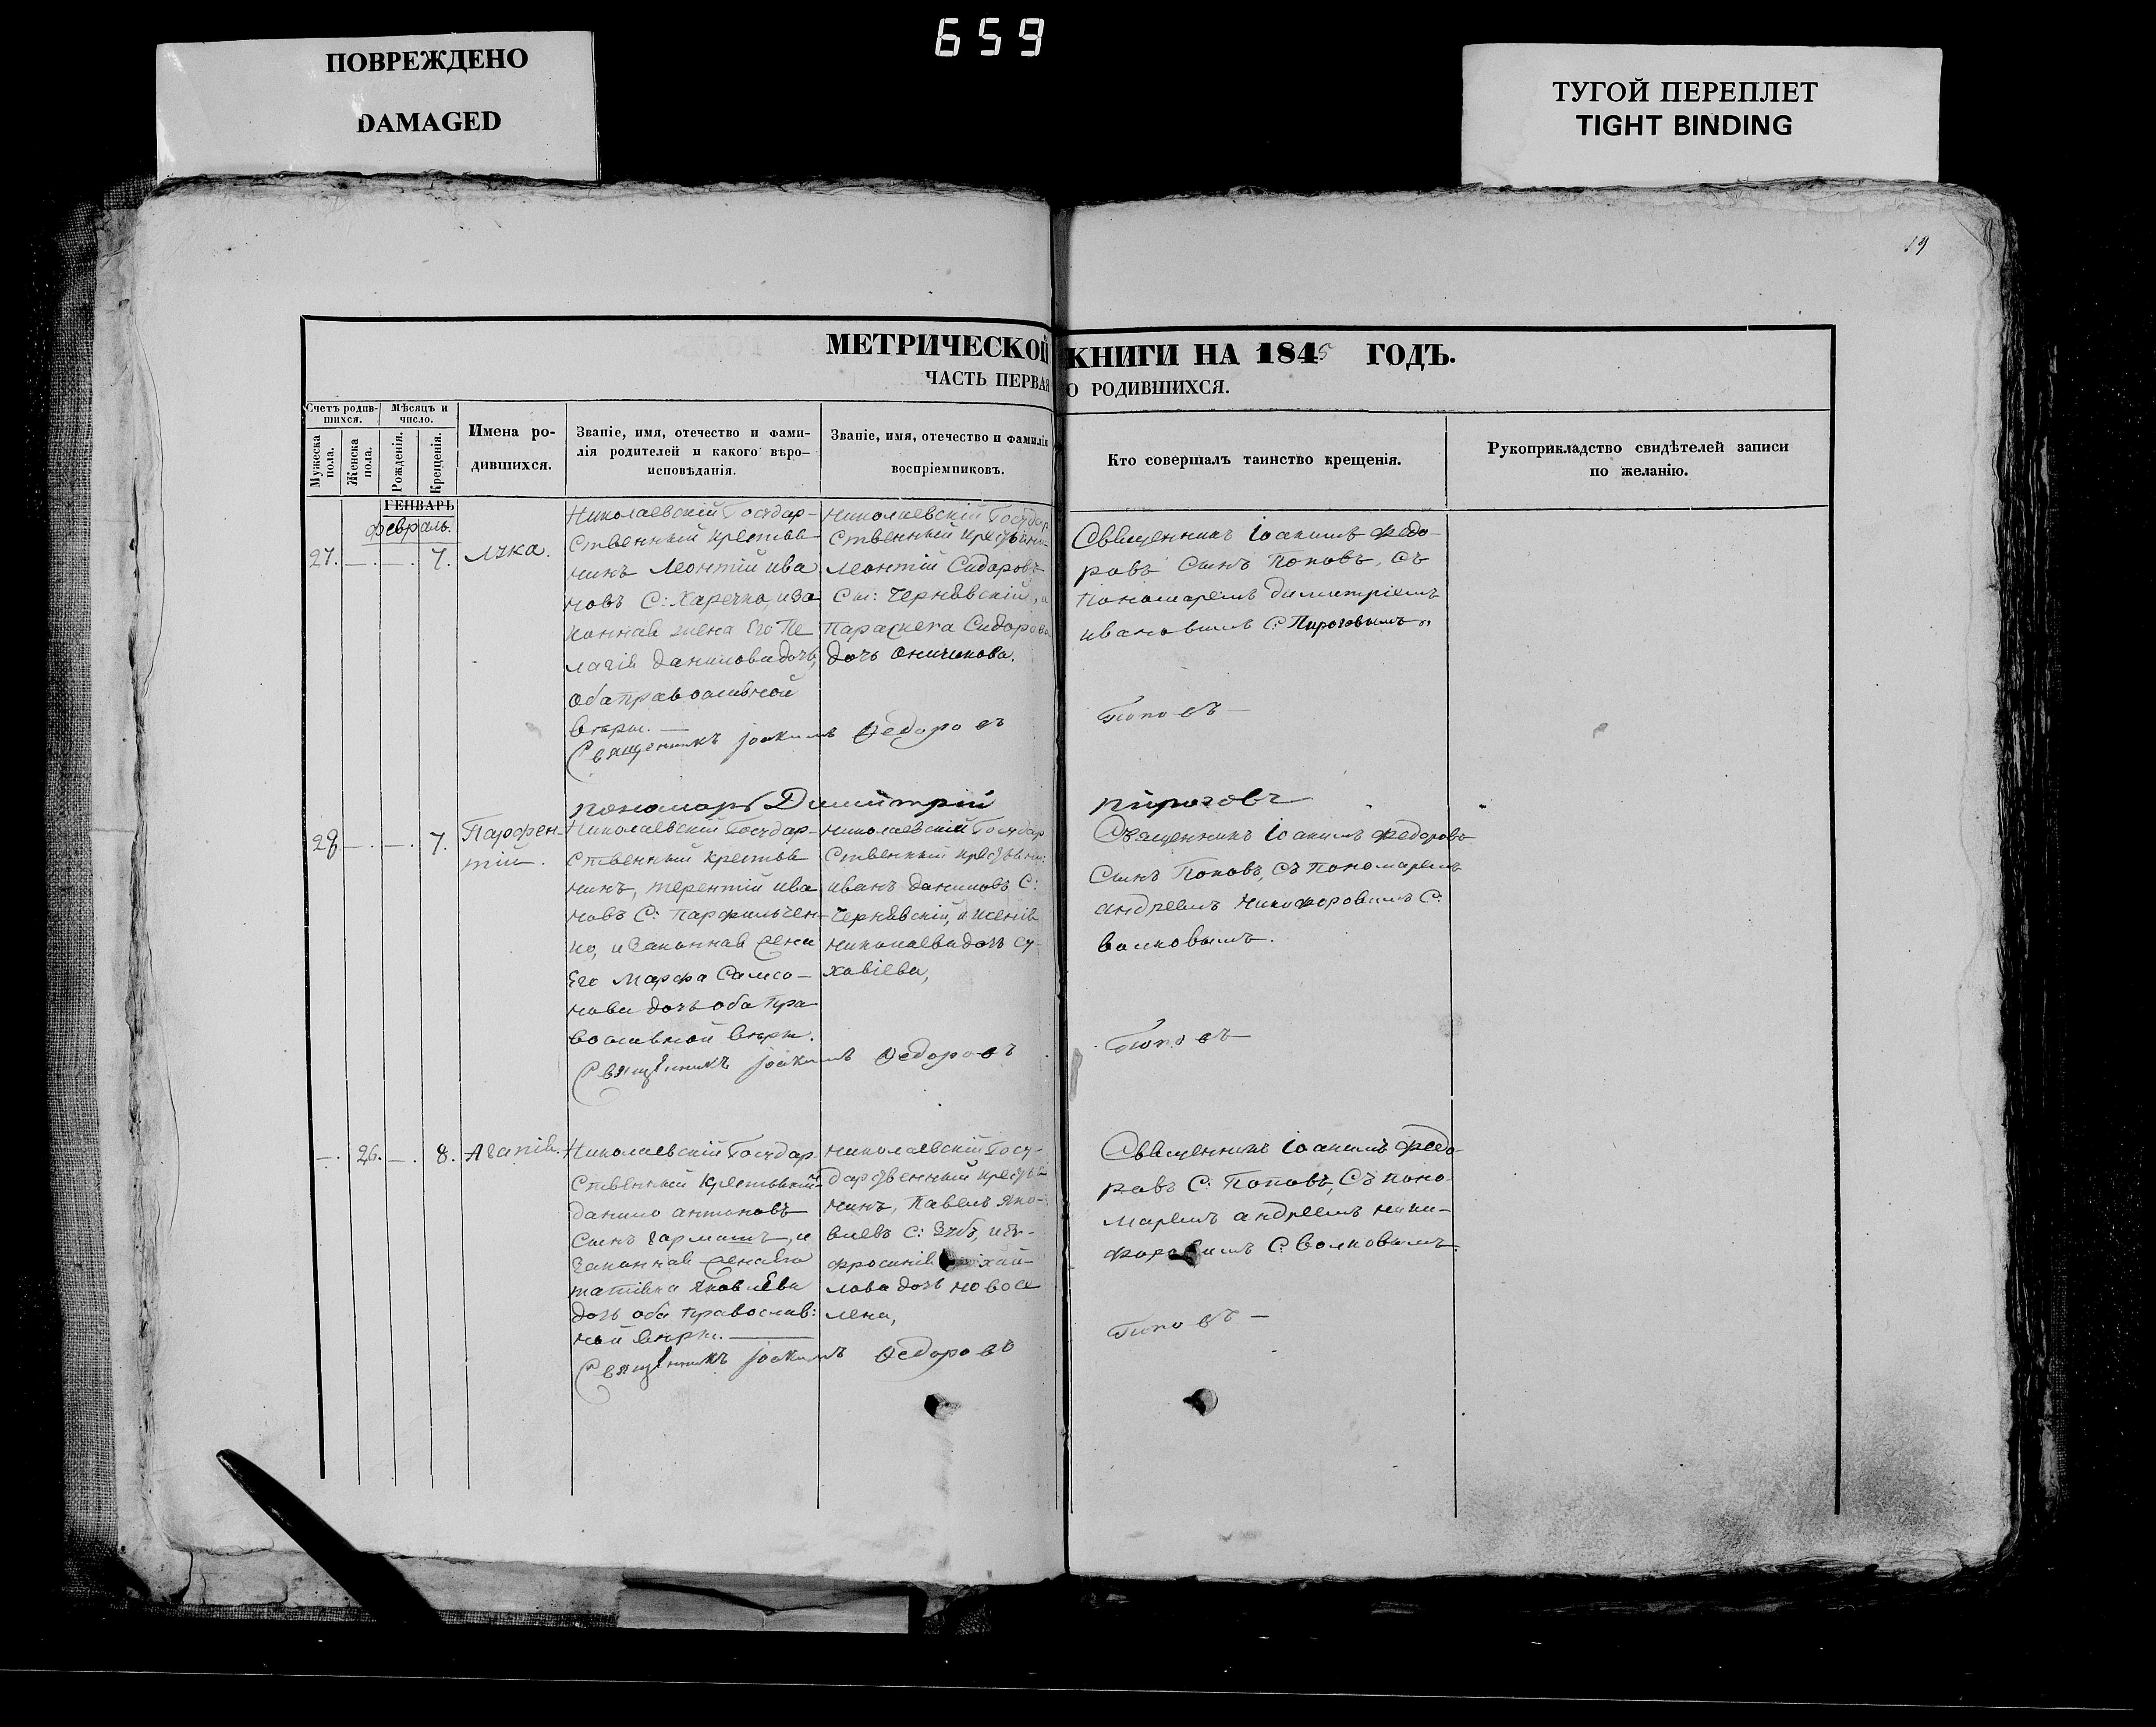 659
ПОВРЕЖДЕНО
DAMAGED
ТУГОЙ ПЕРЕПЛЕТ
TIGHT BINDING
19
МЕТРИЧЕСКОЙ КНИГИ НА 1845 ГОДЪ.
ЧАСТЬ ПЕРВАЯ О РОДИВШИХСЯ.
Счетъ родив-
шихся.
Мѣсяцъ и
число.
Мужеска
пола.
Женска
пола.
Рожденія.
Крещенія.
Имена ро-
дившихся.
Званіе, имя, отечество и фами-
лія родителей и какого вѣро-
исповѣданія.
Званіе, имя, отечество и фамилія
воспріемниковъ.
Кто совершалъ таинство крещенія.
Рукоприкладство свидѣтелей записи
по желанію.
ГЕНВАРЬ
Февраль.
27. —. —. 7. Лука.
Николаевскій Государ-
ственный крестья
нинъ Леонтій ива
новъ С: Харечко, иза
конная жена Его Пе
лагія данилова дочь,
оба православной
вѣры. —
Николаевскій Государ
ственный крестьяни-
Леонтій Сидоровъ
сы: Чернявскій, и
Параскева Сидорова
дочь Оничкова.
Священникъ Іоакимъ Федо-
ровъ сынъ Поповъ, съ
пономаремъ димитріемъ
ивановымъ С: Пироговымъ.
Священникъ Іоакимъ Федоровъ Поповъ —
пономарь Димитрій пироговъ
28 —. —. 7. Парфен-
тій.
Николаевскій Государ-
ственный крестья
нинъ, терентій ива
новъ С: Парфильчен-
ко, и законная жена
Его Марфа Самсо-
нова дочь оба пра
вославной вѣры.
Николаевскій Государ
ственный крестьяни:
иванъ даниловъ С:
Чернявскій, и ксенія
николаева дочь су-
ховіева,
Священникъ Іоакимъ Федоровъ
сынъ Поповъ, съ пономаремъ
андреемъ никифоровымъ С:
волковымъ.
Священникъ Іоакимъ Федоровъ Поповъ —
—. 26. —. 8. Агапія.
Николаевскій Государ
ственный крестьянин
данило антоновъ
сынъ Гармашъ, и
законная жена его
татіяна Яковлева
дочь оба православ:
ной вѣры. —
Николаевскій Госу-
дарственный крестья
нинъ, Павелъ Яко-
влевъ С: Зубъ, и Ев-
фросинія
лова дочь новосе
лена,
Священникъ Іоакимъ Федо-
ровъ С: Поповъ, Съ поно-
маремъ андреемъ ники-
форовымъ С: Волковымъ.
Священникъ Іоакимъ Федоровъ Поповъ —